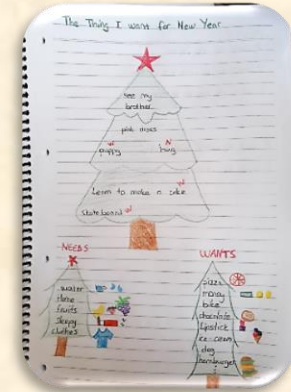 The Thing I want for New Year
see my
brother
pink dress
W N
puppy hug
W
Learn to make a cake
skateboard W
NEEDS
water
Home
fruits
sleep
clothes
WANTS
pizza
money
bike
chocolate
Lipstick
ice-cream
dog
hamburger